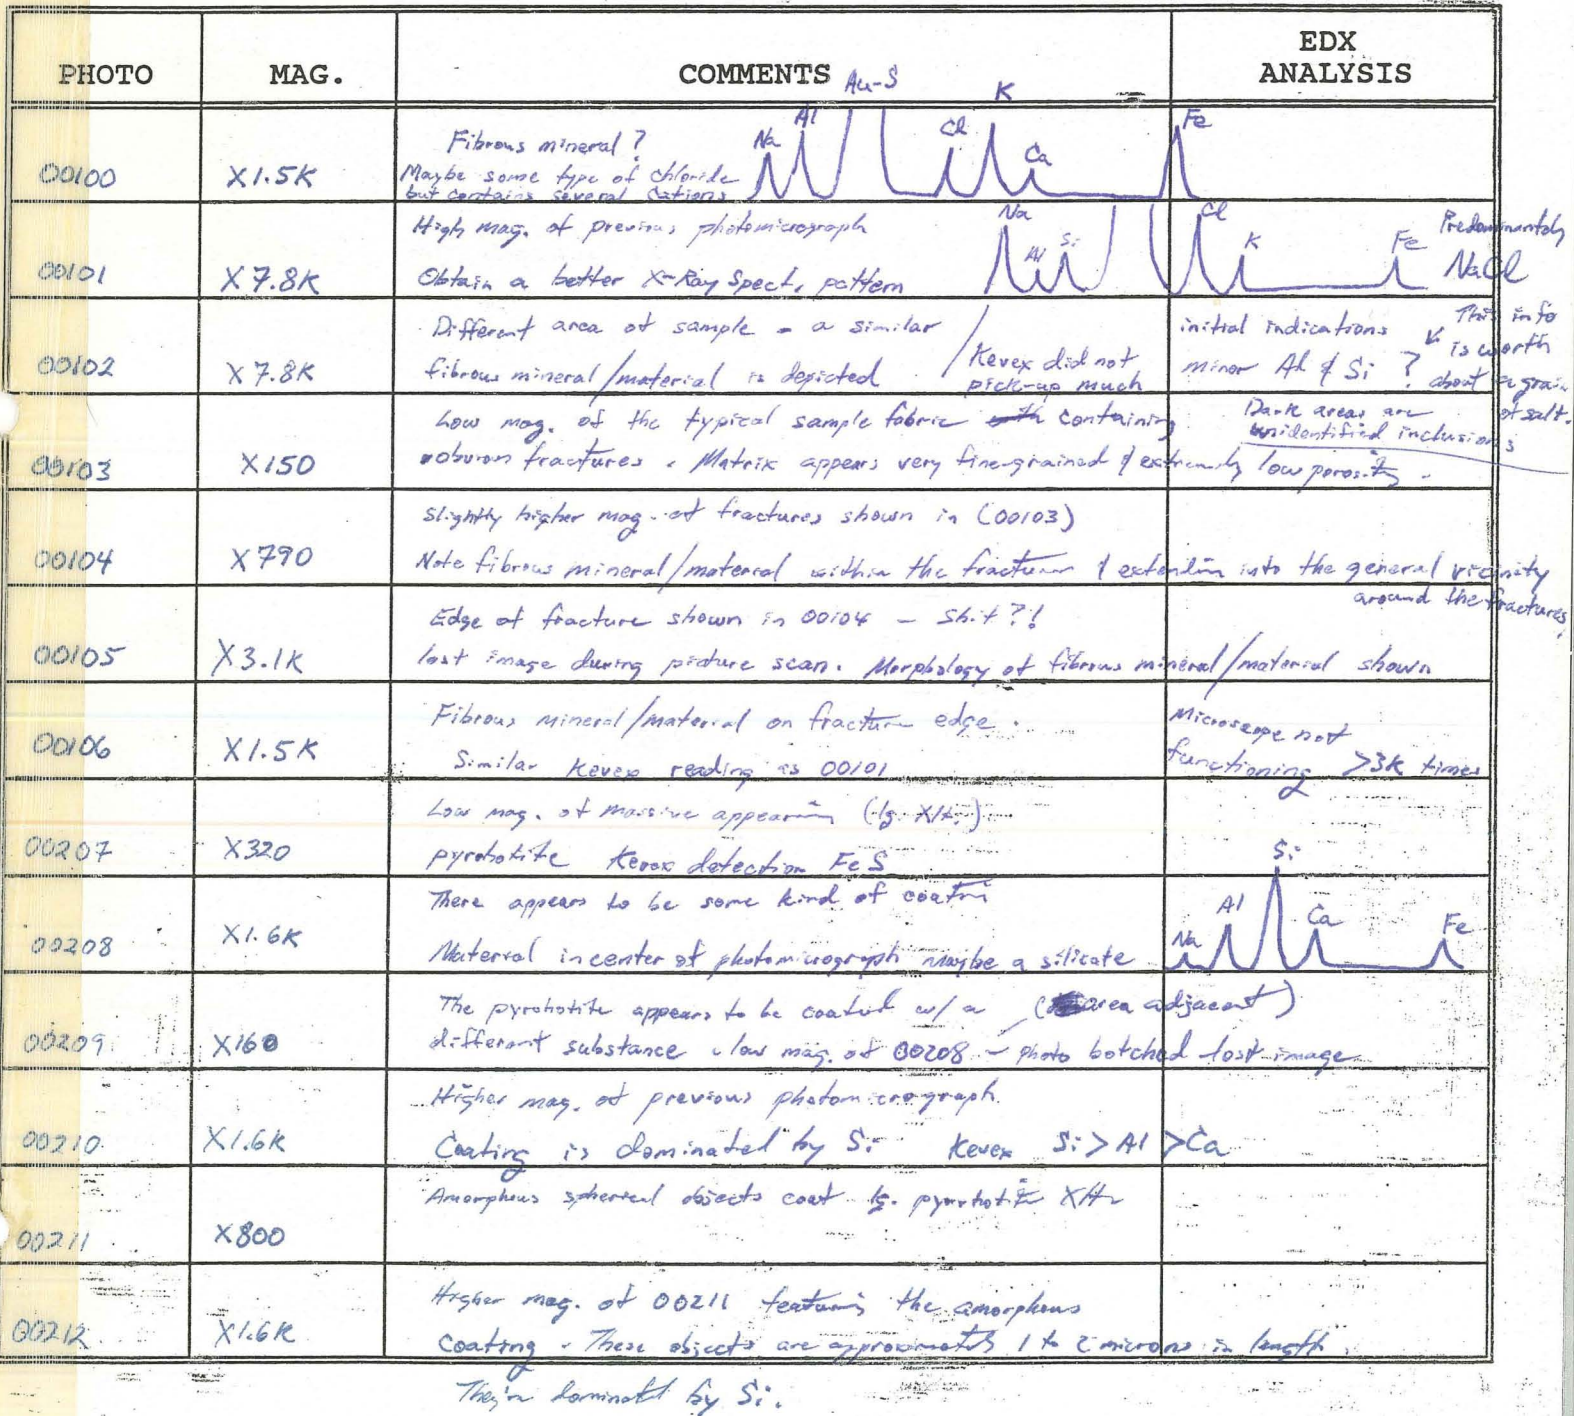 PHOTO MAG. COMMENTS EDX ANALYSIS
Au-S
00100 X1.5K Fibrous mineral?
Maybe some type of chloride
but contains several cations
Na Al Cl K Ca Fe
00101 X7.8K High mag. of previous photomicrograph
Obtain a better X-Ray Spect. pattern
Na Al Si Cl K Fe
Predominantly
NaCl
00102 X7.8K Different area of sample - a similar
fibrous mineral/material is depicted
/ Kevex did not
pick-up much
initial indications
minor Al & Si ?
This info
is worth
about a grain
of salt.
00103 X150 Low mag. of the typical sample fabric containing
fractures. Matrix appears very fine-grained & extremely low porosity.
Dark areas are
unidentified inclusions
00104 X790 Slightly higher mag. of fractures shown in (00103)
Note fibrous mineral/material within the fractures & extending into the general vicinity
around the fractures.
00105 X3.1K Edge of fracture shown in 00104 - Shit?!
lost image during picture scan. Morphology of fibrous mineral/material shown
00106 X1.5K Fibrous mineral/material on fracture edge.
Similar Kevex reading as 00101
Microscope not
functioning >3K times
00207 X320 Low mag. of massive appearing (lg. Xtl.)
pyrohotite Kevex detection FeS
00208 X1.6K There appears to be some kind of coatin
Material in center of photomicrograph maybe a silicate
Na Al Si Ca Fe
00209 X160 The pyrohotite appears to be coated w/ a (area adjacent)
different substance - low mag. of 00208 - photo botched lost image
00210 X1.6K Higher mag. of previous photomicrograph.
Coating is dominated by Si Kevex Si > Al > Ca
00211 X800 Amorphous spherical objects coat lg. pyrrhotite Xtl
00212 X1.6K Higher mag. of 00211 featuring the amorphous
coating. These objects are approximately 1 to 2 microns in length.
They're dominated by Si.